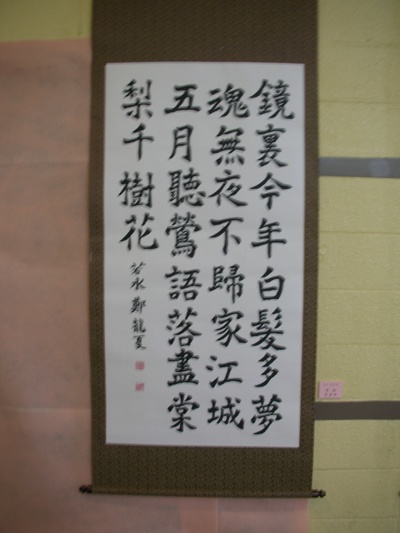 鏡裏今年白髮多夢
魂無夜不歸家江城
五月聽鶯語落盡棠
梨千樹花
若水 鄭龍夏